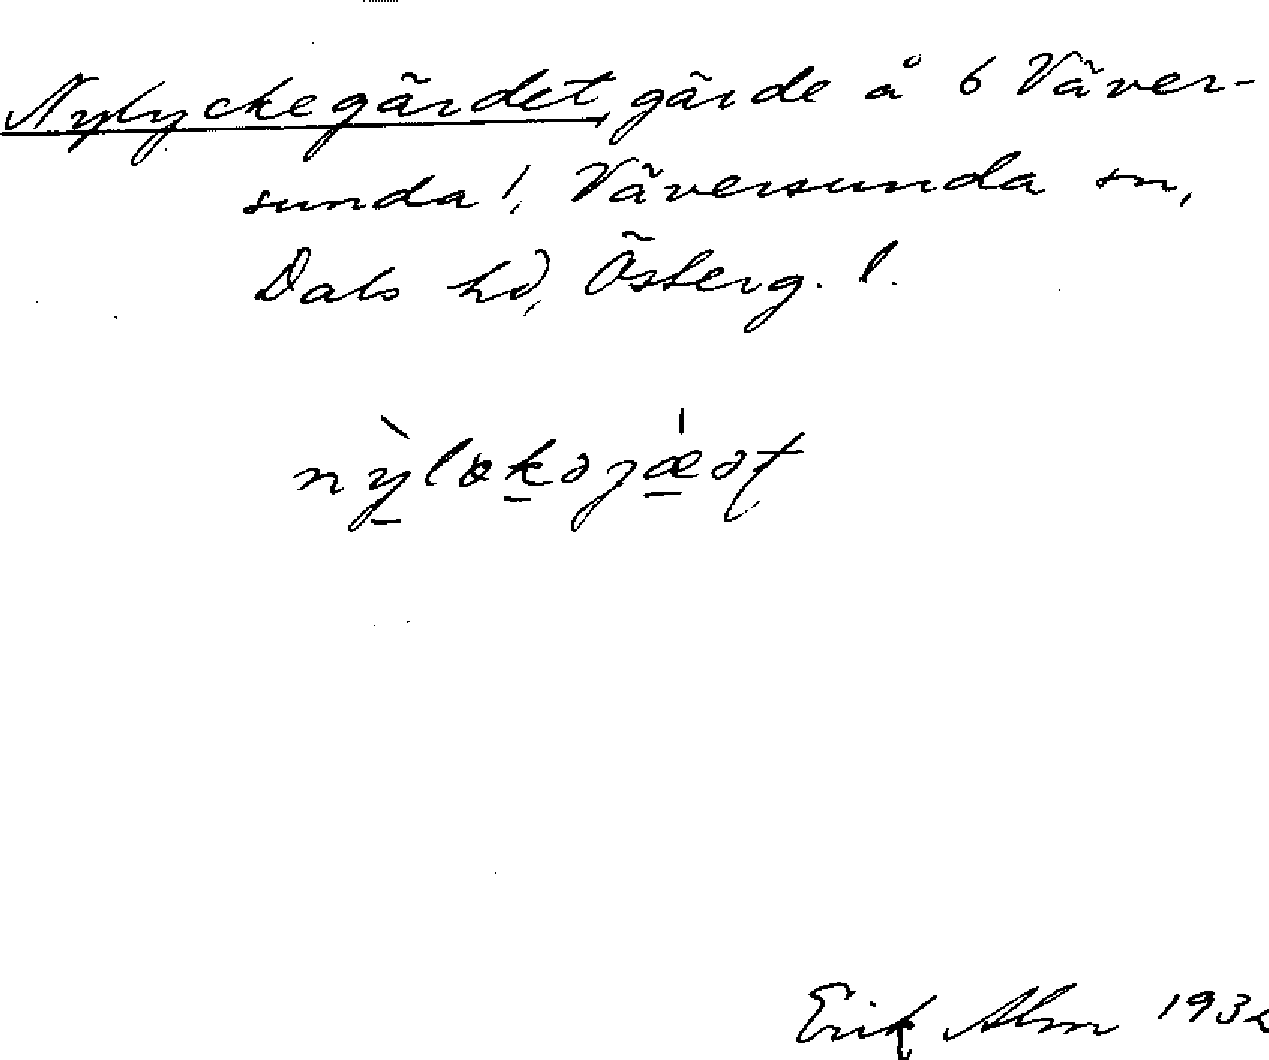 Nylyckegärdet, gärde å 6 Väver-
sunda !, Väversunda sn,
Dals hd, Österg. l.
Erik Alm 1932